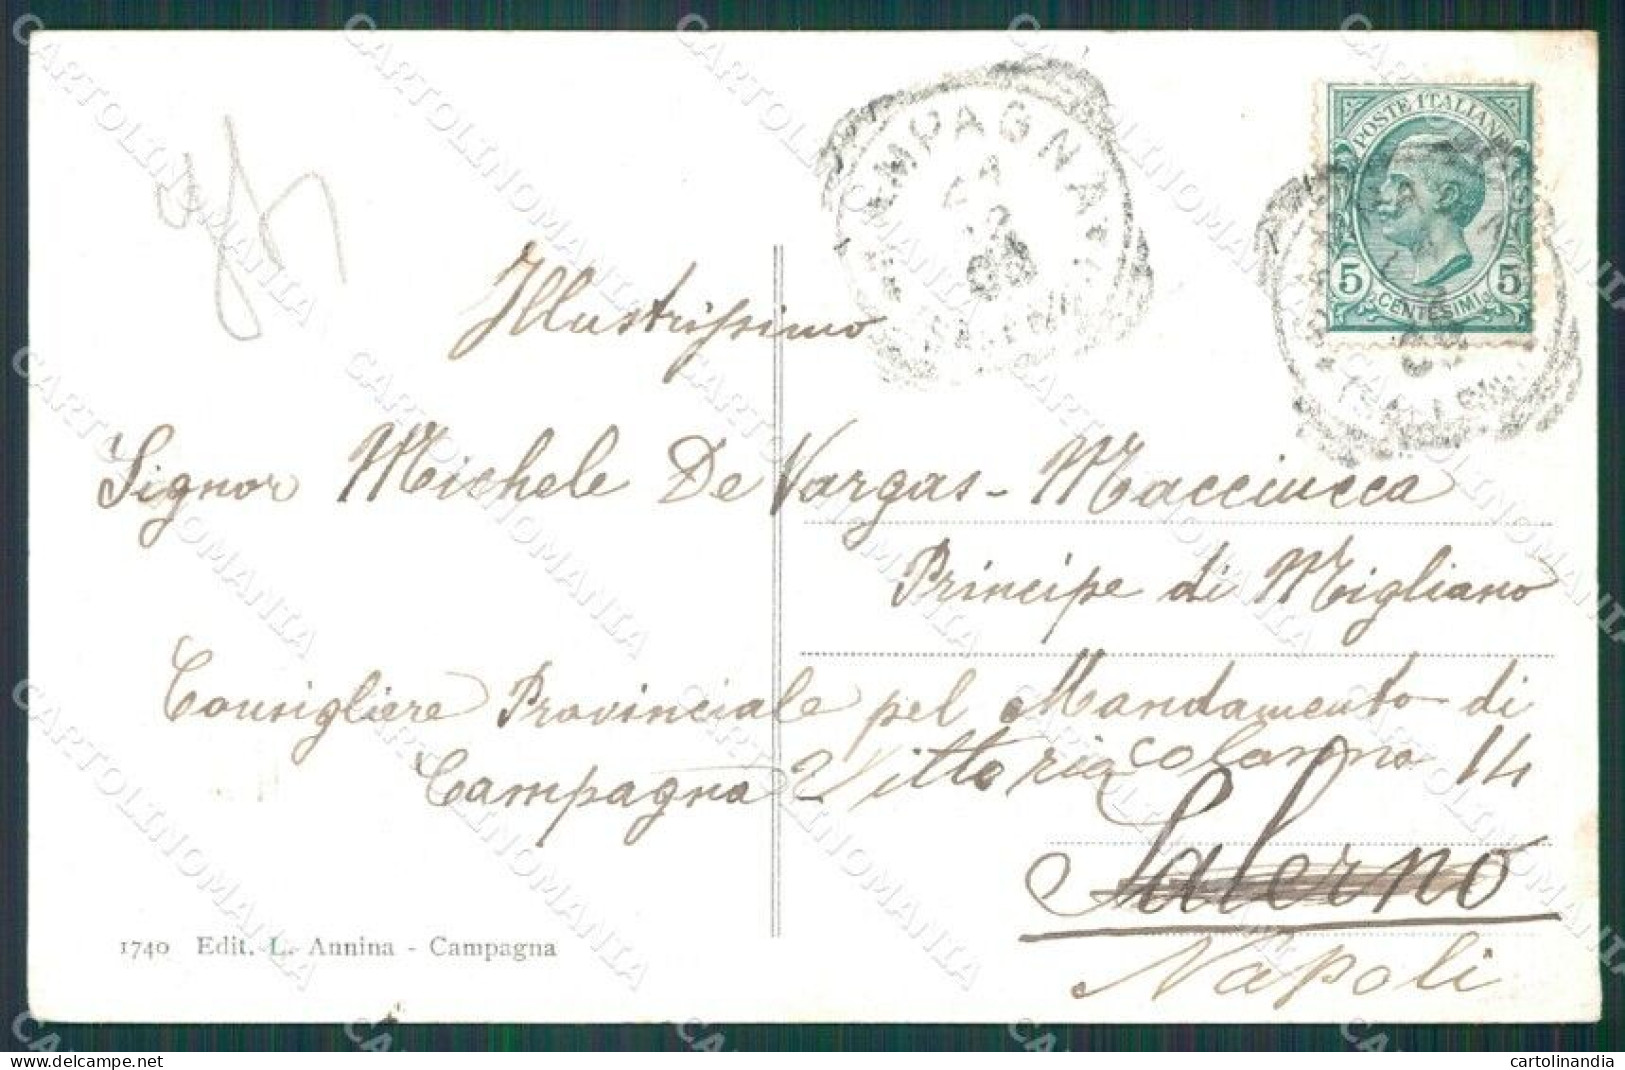 Illustrissimo
Signor Michele De Vargas - Macciucca
Principe di Migliano
Consigliere Provinciale pel Mandamento di
Campagna - Vittoria Colonna 14
Salerno
Napoli
1740 Edit. L. Annina - Campagna
CAMPAGNA
POSTE ITALIANE
5 CENTESIMI 5
CARTOLINOMANIA
cartolinandia